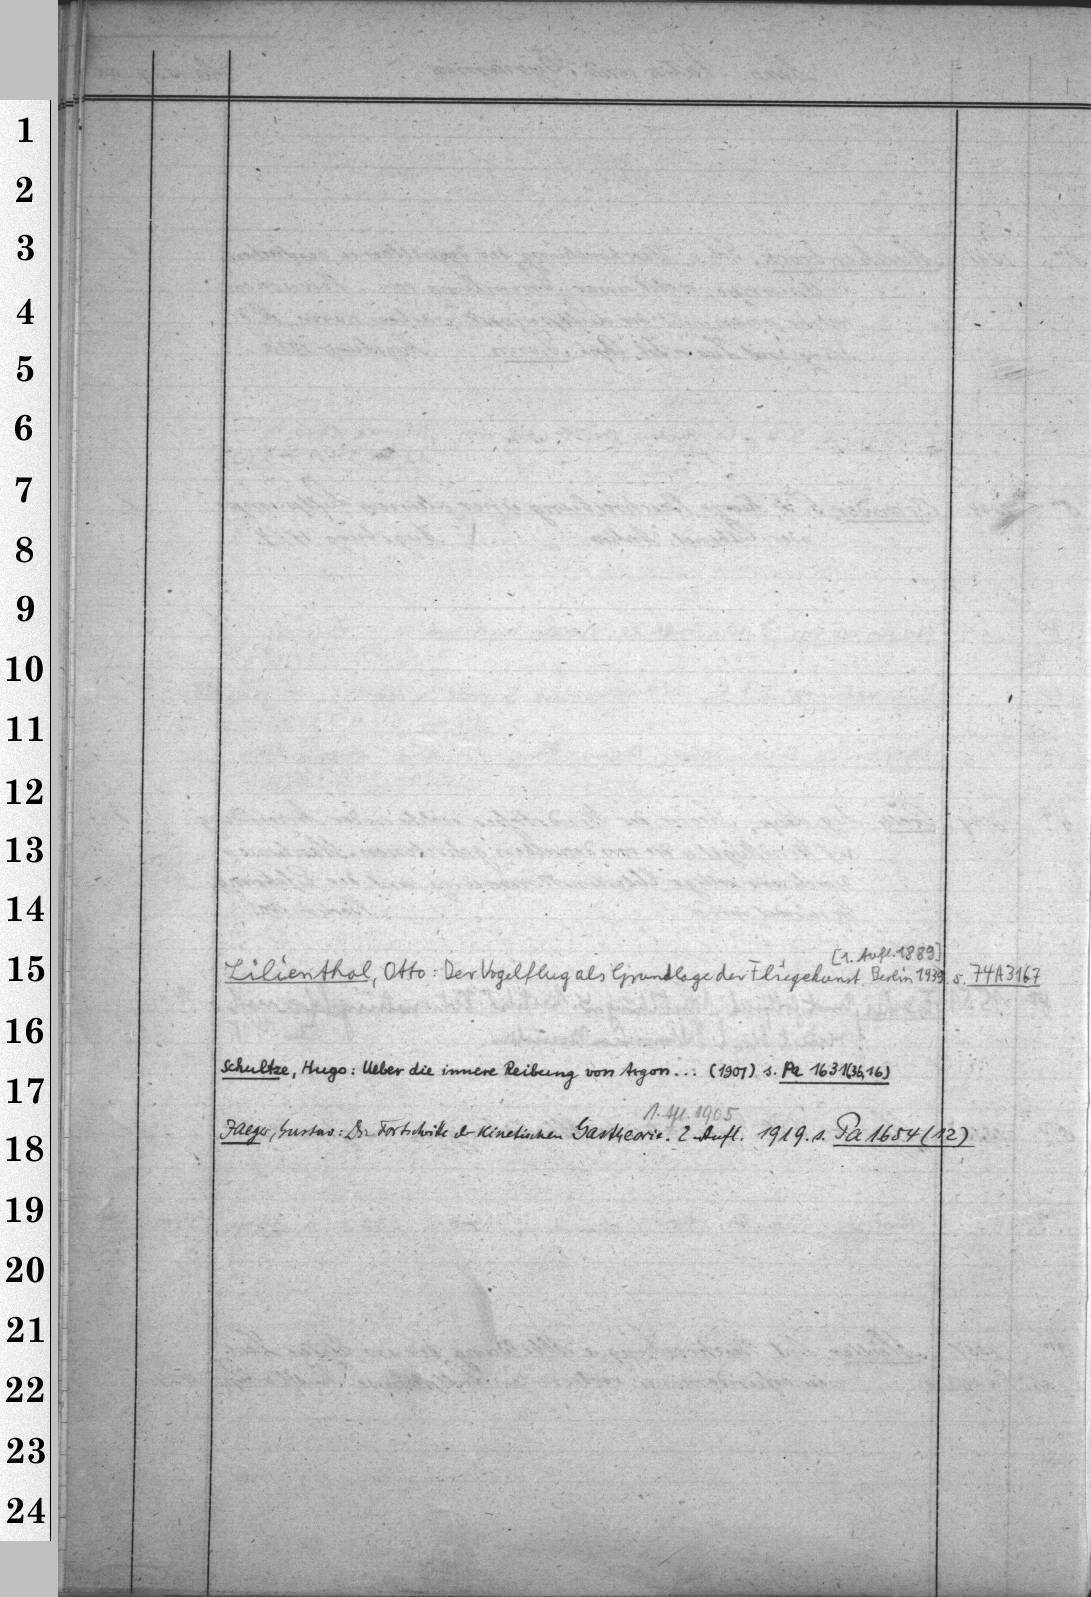 1
2
3
4
5
6
7
8
9
10
11
12
13
14
[1. Aufl. 1889]
15 Lilienthal, Otto: Der Vogelflug als Grundlage der Fliegekunst. Berlin 1939 s. 74A3167
16
Schultze, Hugo: Ueber die innere Reibung von Argon... (1901) s. Pa 1631(36,16)
17
1. Afl. 1905
Jaeger, Gustav: Die Fortschritte der kinetischen Gastheorie. 2. Aufl. 1919. s. Pa 1654(12)
18
19
20
21
22
23
24